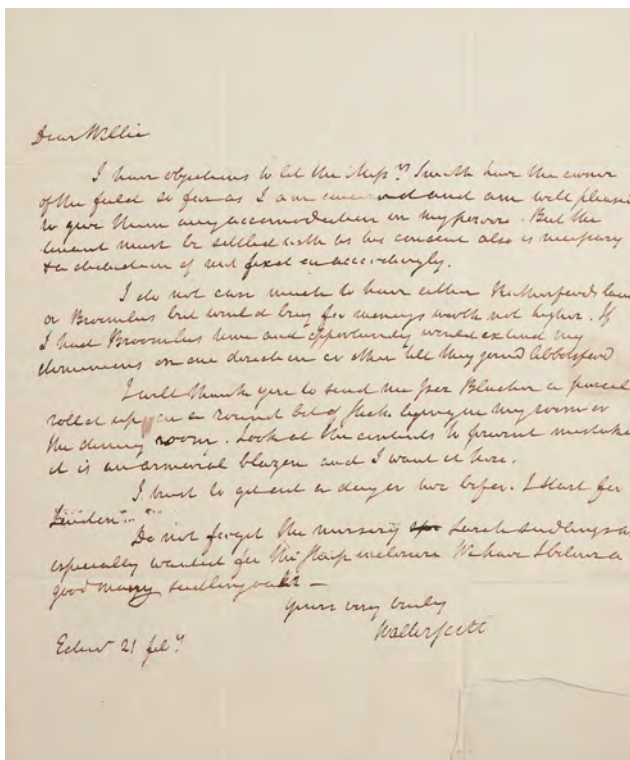 Dear Willie
I have objections to let the Mess.rs Smith have the corner
of the field so far as I am concerned and am well pleased
to give them any accomodation in my power. But the
tenant must be settled with as his consent also is necessary
& a deduction of rent fixd on accordingly.
I do not care much to have either Rutherfords land
or Broomlees but would buy for moneys worth not higher. If
I had Broomlees time and opportunity would extend my
domains on one direction or other till they joind Abbotsford
I will thank you to send me per Blucher a parcel
rolld up on a round bit of stick lying in my room or
the dining room. Look at the contents to prevent mistake
it is an armorial blazon and I want it here.
I trust to get out a day or two before I start for
London
Do not forget the nursery Larch seedlings are
especially wanted for the inclosure We have I believe a
good many seedling oaks —
Yours very truly
Walter Scott
Edinr 21 feby